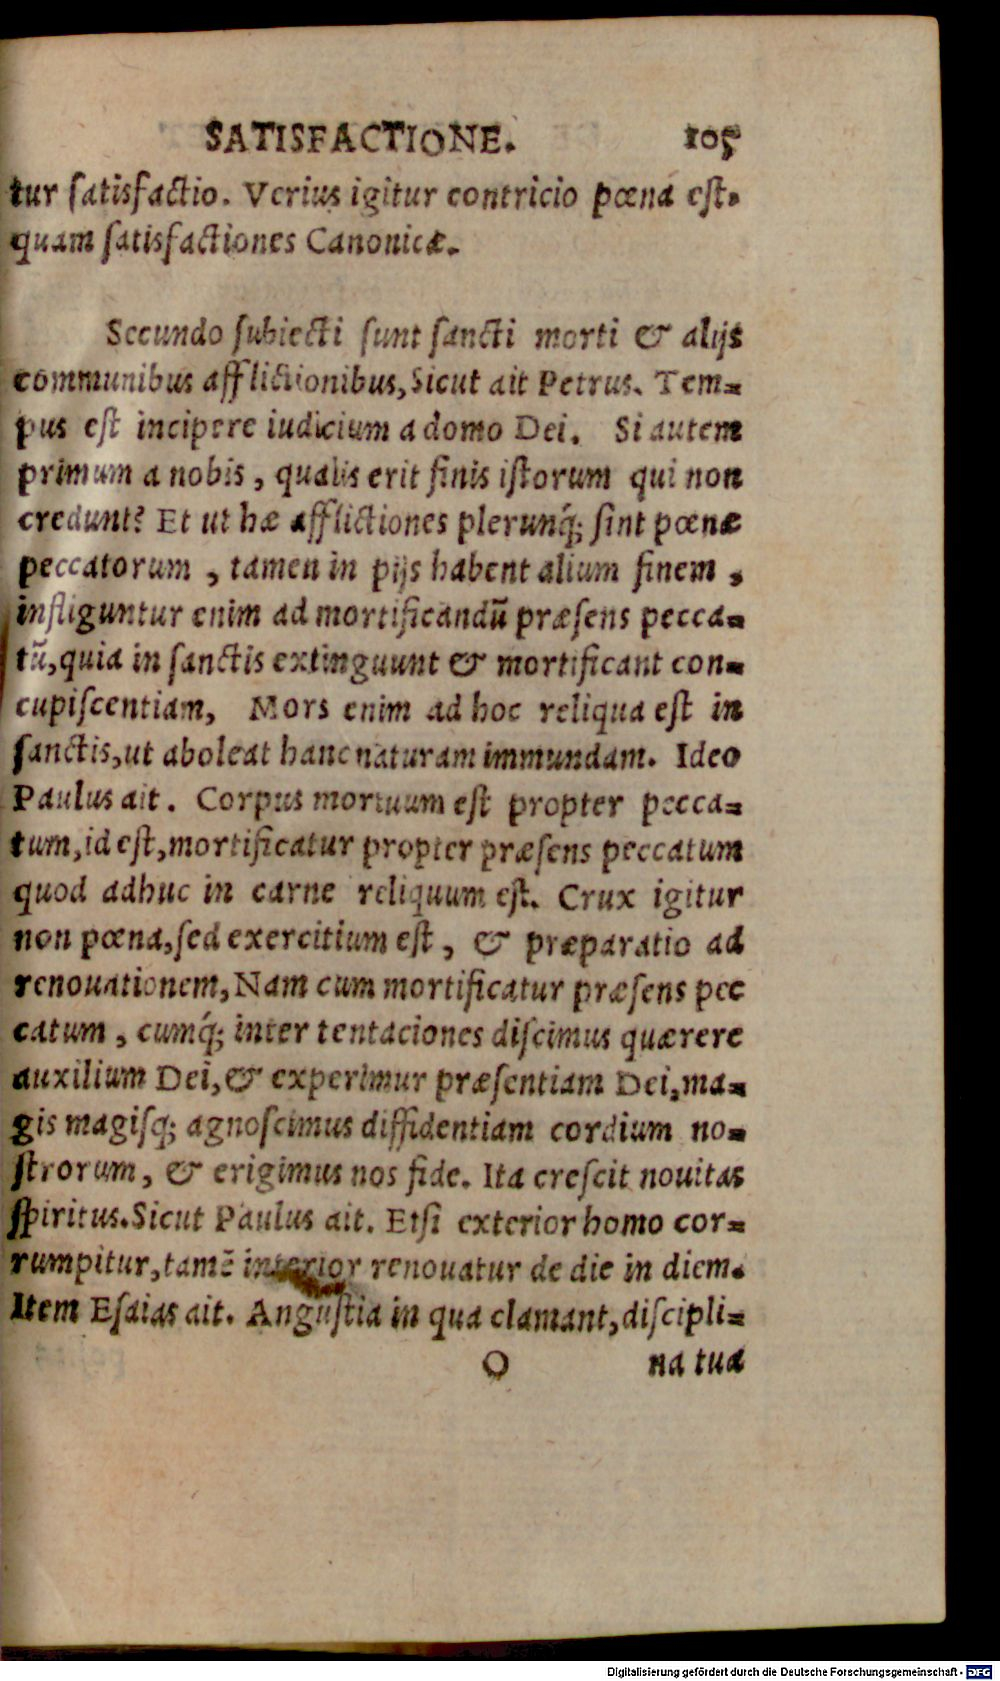 SATISFACTIONE. 105
tur ſatisfactio. Verius igitur contricio pœna eſt.
quam ſatisfactiones Canonicæ.
Secundo ſubiecti ſunt ſancti morti & alijs
communibus afflictionibus, Sicut ait Petrus. Tem=
pus eſt incipere iudicium a domo Dei. Si autem
primum a nobis, qualis erit finis iſtorum qui non
credunt? Et ut hæ afflictiones plerunq́; ſint pœnæ
peccatorum, tamen in pijs habent alium finem,
infliguntur enim ad mortificandũ præſens pecca=
tũ, quia in ſanctis extinguunt & mortificant con=
cupiſcentiam, Mors enim ad hoc reliqua eſt in
ſanctis, ut aboleat hanc naturam immundam. Ideo
Paulus ait. Corpus mortuum eſt propter pecca=
tum, id eſt, mortificatur propter præſens peccatum
quod adhuc in carne reliquum eſt. Crux igitur
non pœna, ſed exercitium eſt, & præparatio ad
renouationem, Nam cum mortificatur præſens pec
catum, cumq́; inter tentaciones diſcimus quærere
auxilium Dei, & experimur præſentiam Dei, ma=
gis magiſq; agnoſcimus diffidentiam cordium no=
ſtrorum, & erigimus nos fide. Ita creſcit nouitas
ſpiritus. Sicut Paulus ait. Etſi exterior homo cor=
rumpitur, tamẽ interior renouatur de die in diem.
Item Eſaias ait. Anguſtia in qua clamant, diſcipli=
O na tua
Digitalisierung gefördert durch die Deutsche Forschungsgemeinschaft - DFG